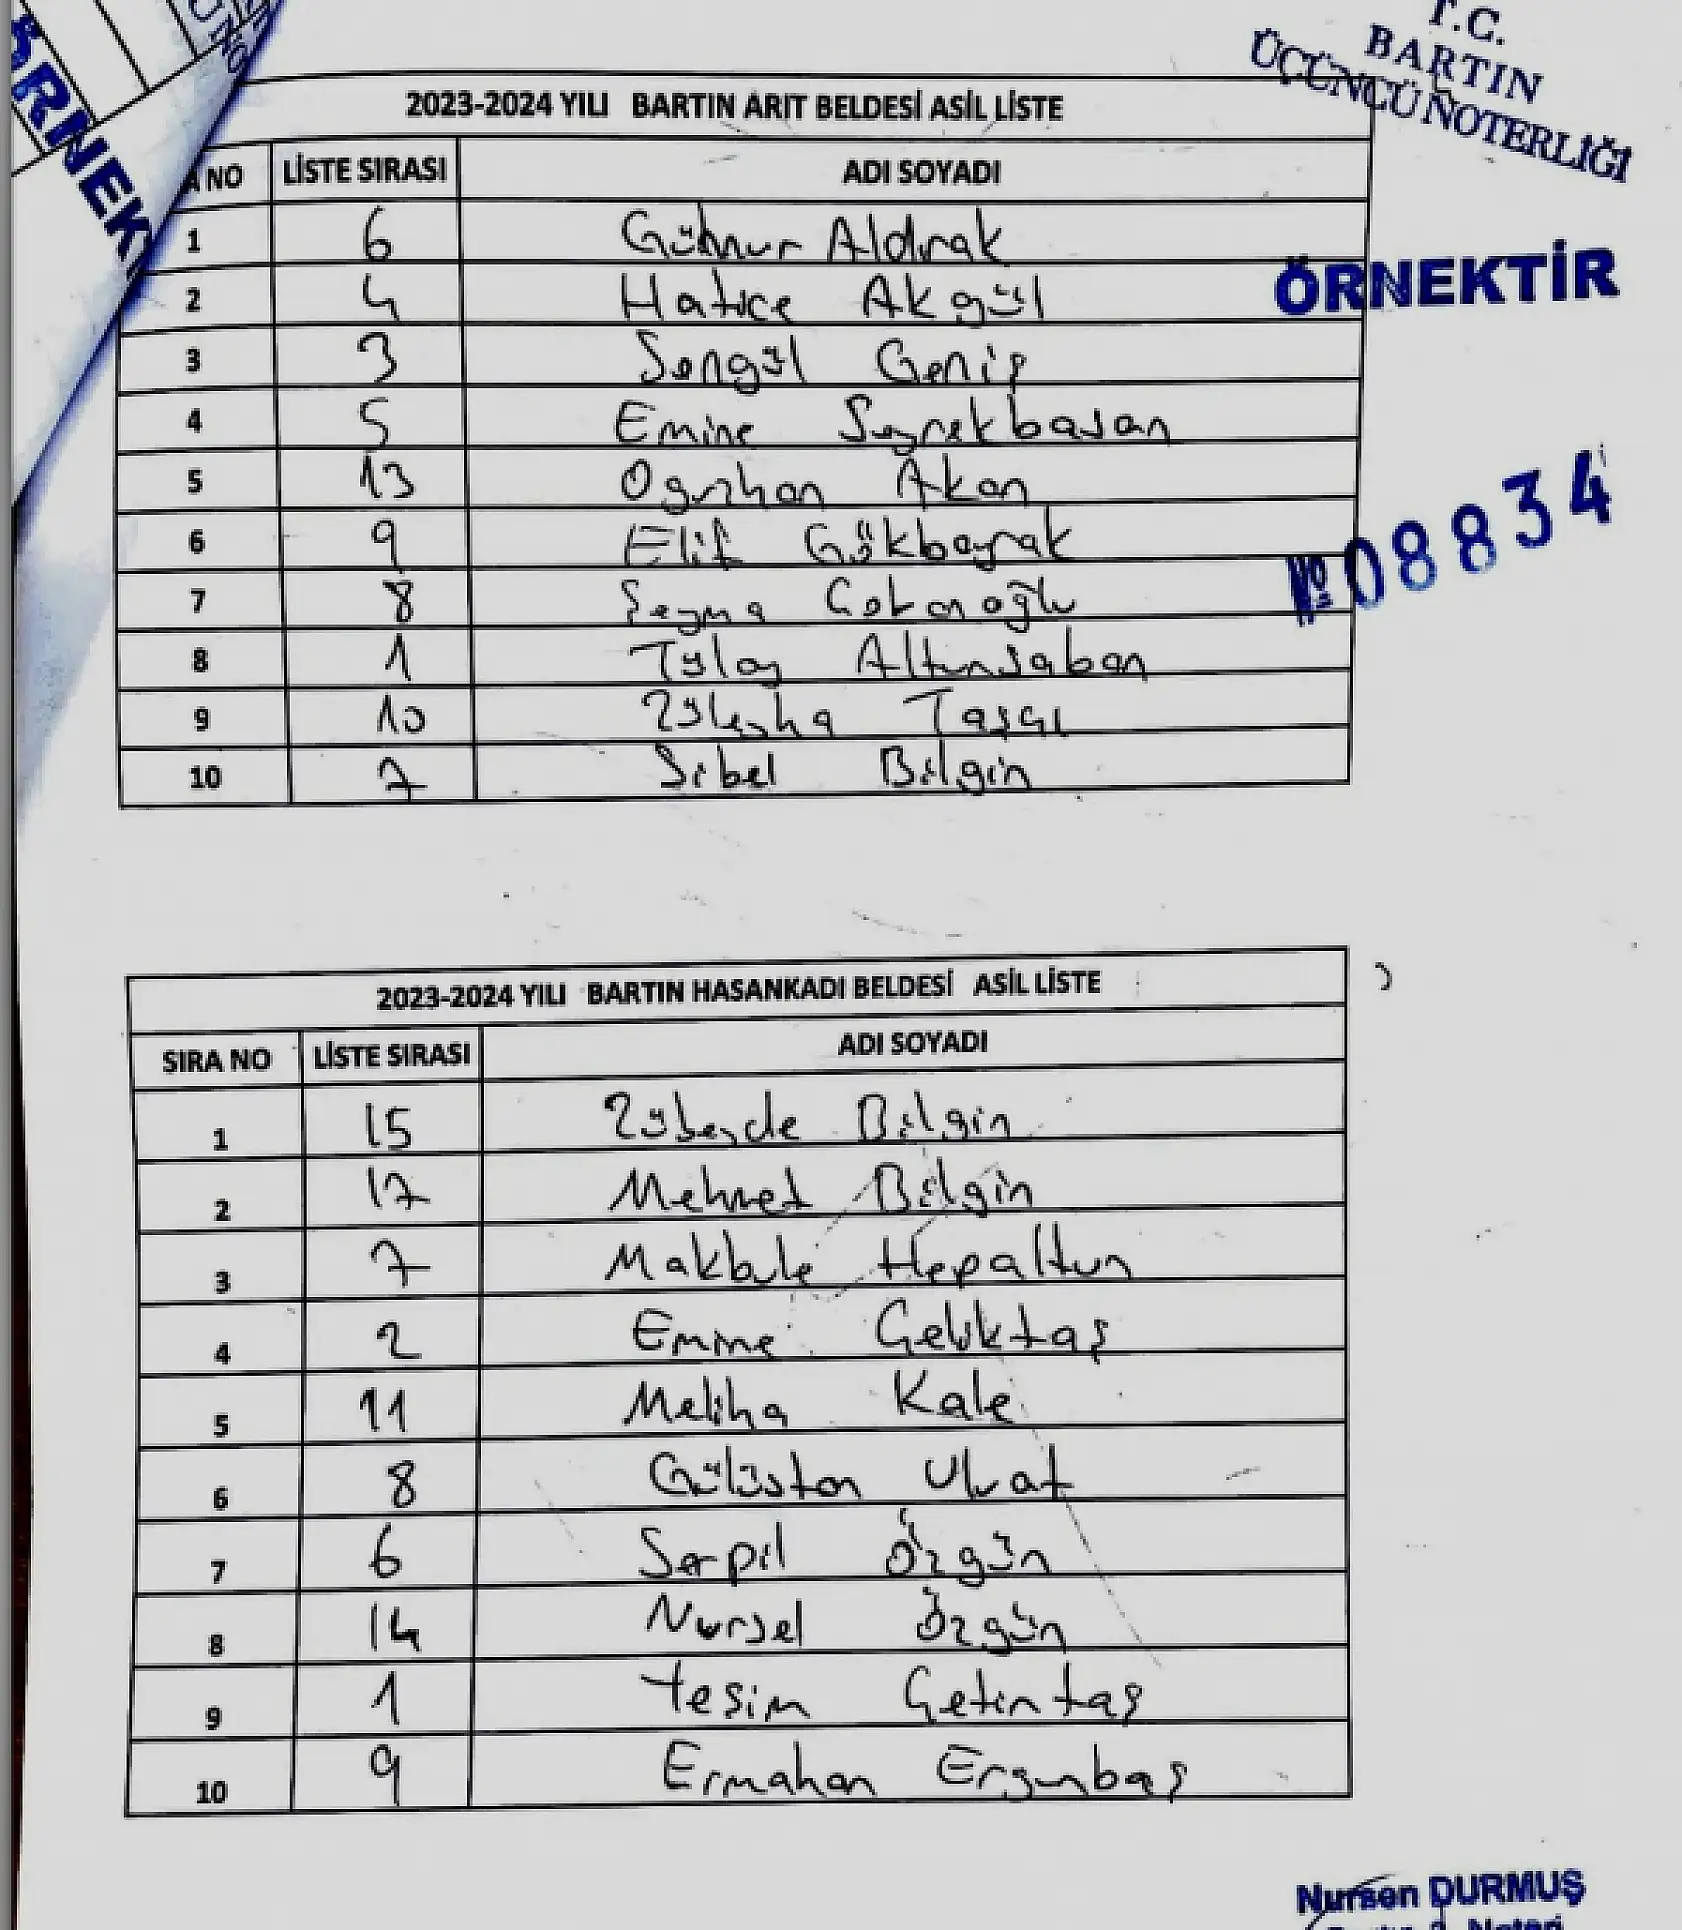 T.C.
BARTIN
ÜÇÜNCÜ NOTERLİĞİ
ÖRNEK
2023-2024 YILI BARTIN ARIT BELDESİ ASİL LİSTE
A NO LİSTE SIRASI ADI SOYADI
1 6 Gülnur Aldırak
2 4 Hatice Akgül
ÖRNEKTİR
3 3 Songül Geniş
4 5 Emine Seyrekbasan
5 13 Oguzhan Akan
6 9 Elif Gökbayrak
№ 08834
7 8 Şeyma Çobanoğlu
8 1 Tülay Altunsaban
9 10 Züleyha Taşçı
10 7 Sibel Bilgin
2023-2024 YILI BARTIN HASANKADI BELDESİ ASİL LİSTE
SIRA NO LİSTE SIRASI ADI SOYADI
1 15 Zübeyde Bilgin
2 17 Mehmet Bilgin
3 7 Makbule Hepaltun
4 2 Emine Çeliktaş
5 11 Meliha Kale
6 8 Gülüstan Ulvat
7 6 Serpil Özgün
8 14 Nursel Özgün
9 1 Yesim Çetintaş
10 9 Ermahan Ergunbaş
Nursen DURMUŞ